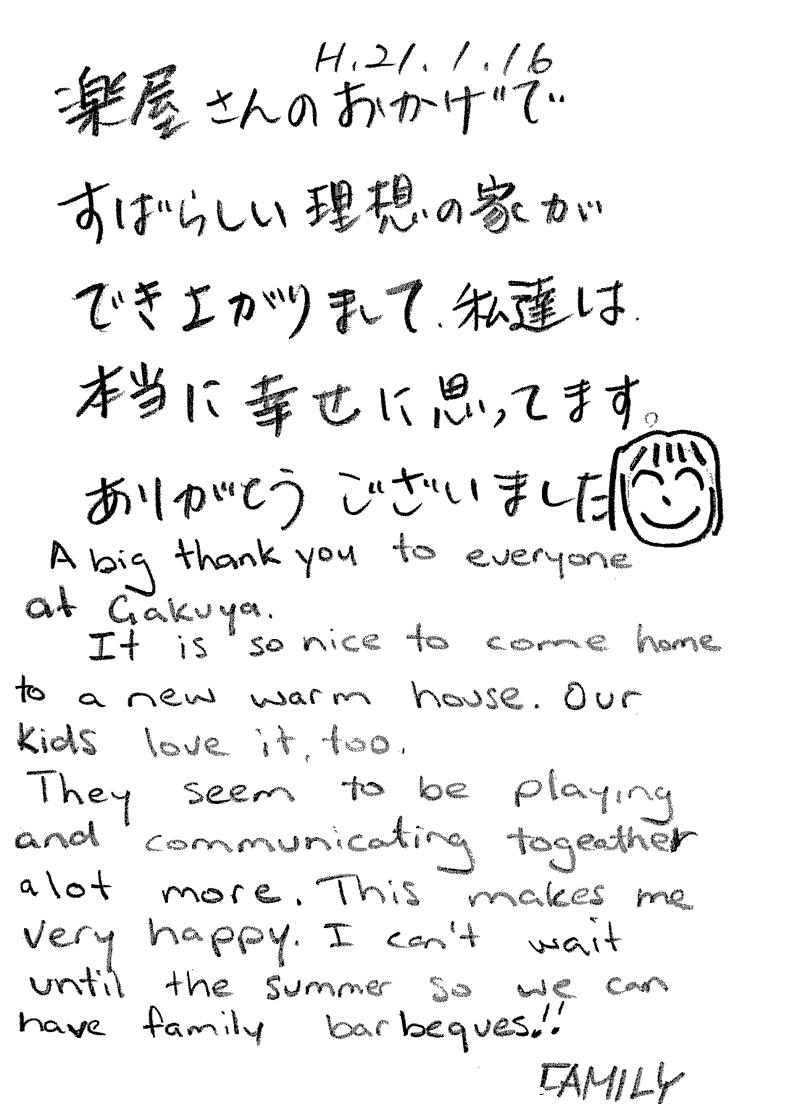 H.21.1.16
楽屋さんのおかげで
すばらしい理想の家が
でき上がりまして、私達は、
本当に幸せに思ってます。
ありがとうございました
A big thank you to everyone
at Gakuya.
It is so nice to come home
to a new warm house. Our
kids love it, too.
They seem to be playing
and communicating togeather
alot more. This makes me
very happy. I can't wait
until the summer so we can
have family barbeques!!
FAMILY